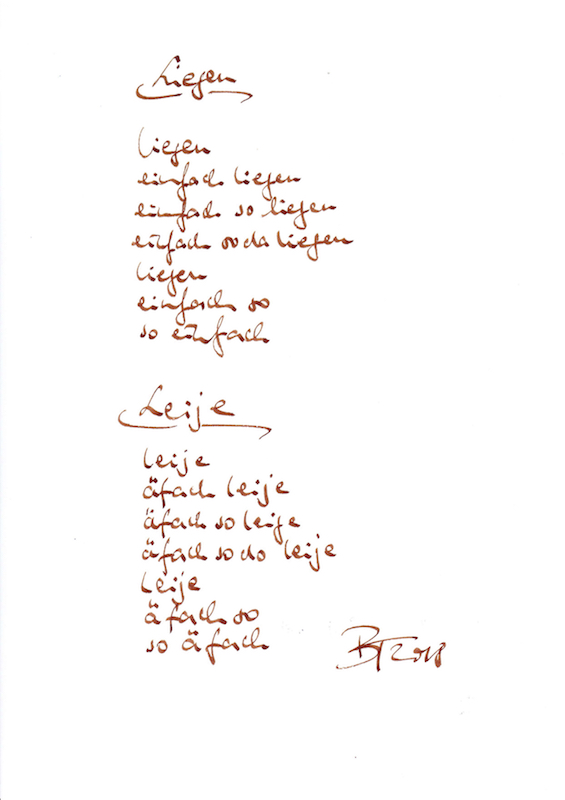 Liegen
liegen
einfach liegen
einfach so liegen
einfach so da liegen
liegen
einfach so
so einfach
Leije
leije
äfach leije
äfach so leije
äfach so do leije
leije
äfach so
so äfach
BT 2018